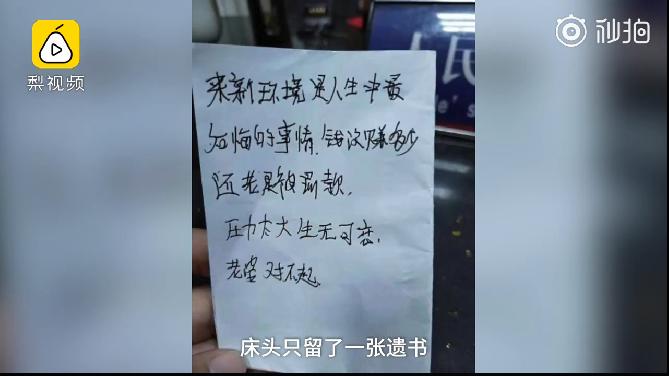 梨视频
秒拍
人民
来新环境是人生中最
后悔的事情,钱没赚多少
还老是被罚款。
压力太大生无可恋,
老婆对不起
床头只留了一张遗书